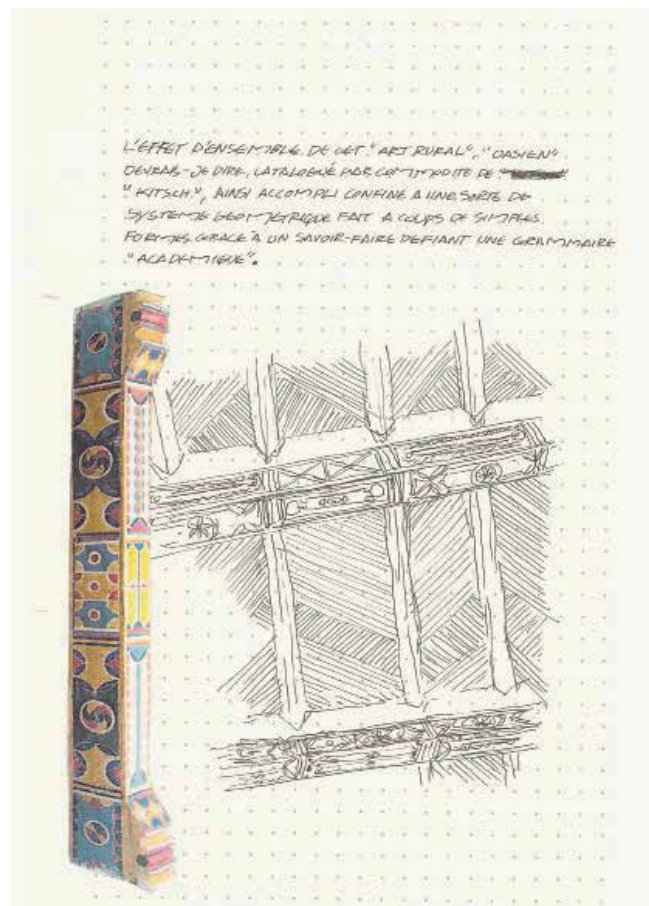 L'EFFET D'ENSEMBLE DE CET "ART RURAL", "OASIEN"
DEVRAIS-JE DIRE, CATALOGUÉ PAR COMMODITE DE
"KITSCH", AINSI ACCOMPLI CONFINE A UNE SORTE DE
SYSTEME GEOMETRIQUE FAIT A COUPS DE SIMPLES
FORMES GRACE À UN SAVOIR-FAIRE DEFIANT UNE GRAMMAIRE
"ACADEMIQUE".